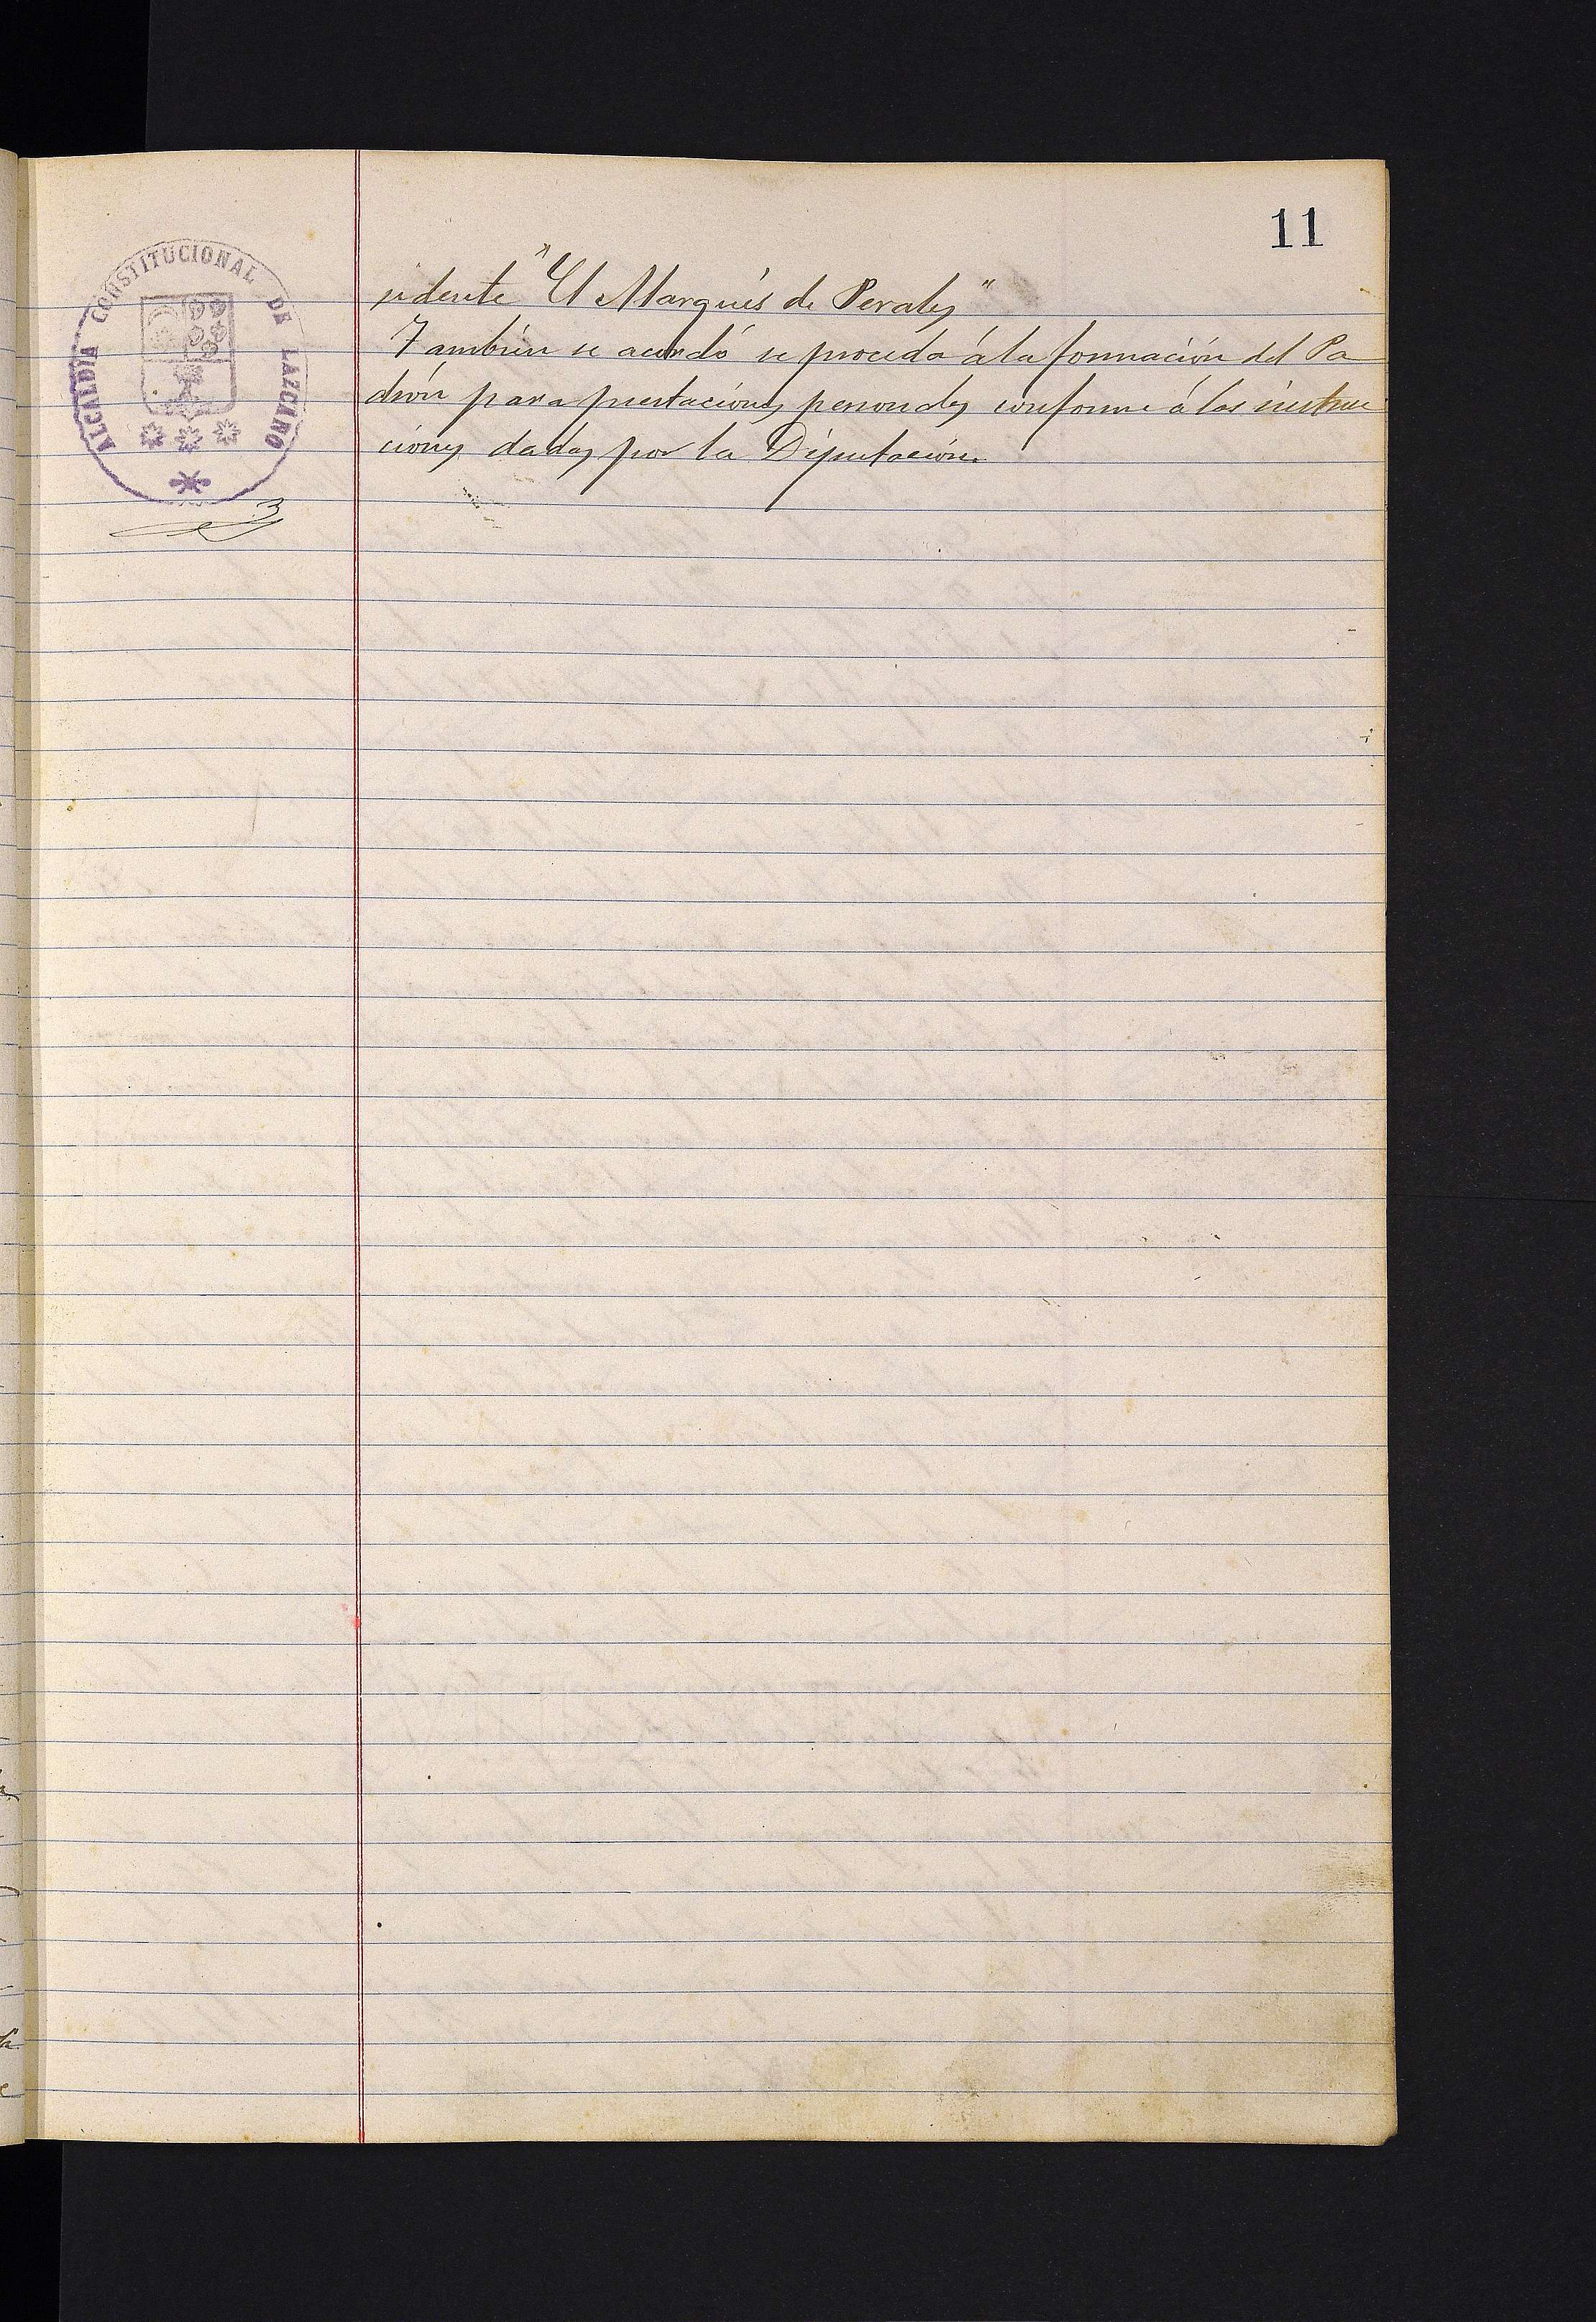 11
ALCALDIA CONSTITUCIONAL DE LAZCANO
sidente "El Marqués de Perales"
También se acordó se proceda á la formación del Pa
drón para prestaciones personales conforme á las instruc
ciones dadas por la Diputación.